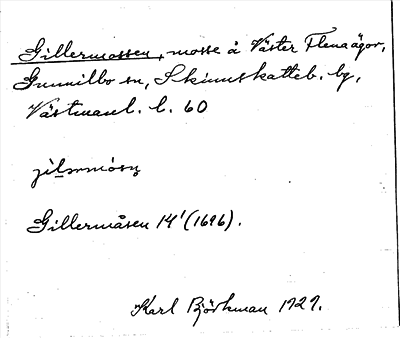 Gillermossen, mosse å Väster Flenaägor,
Gunnilbo sn, Skinnskatteb. bg,
Västmanl. l. 60
Gillermåsen 14' (1696).
Karl Björkman 1929.